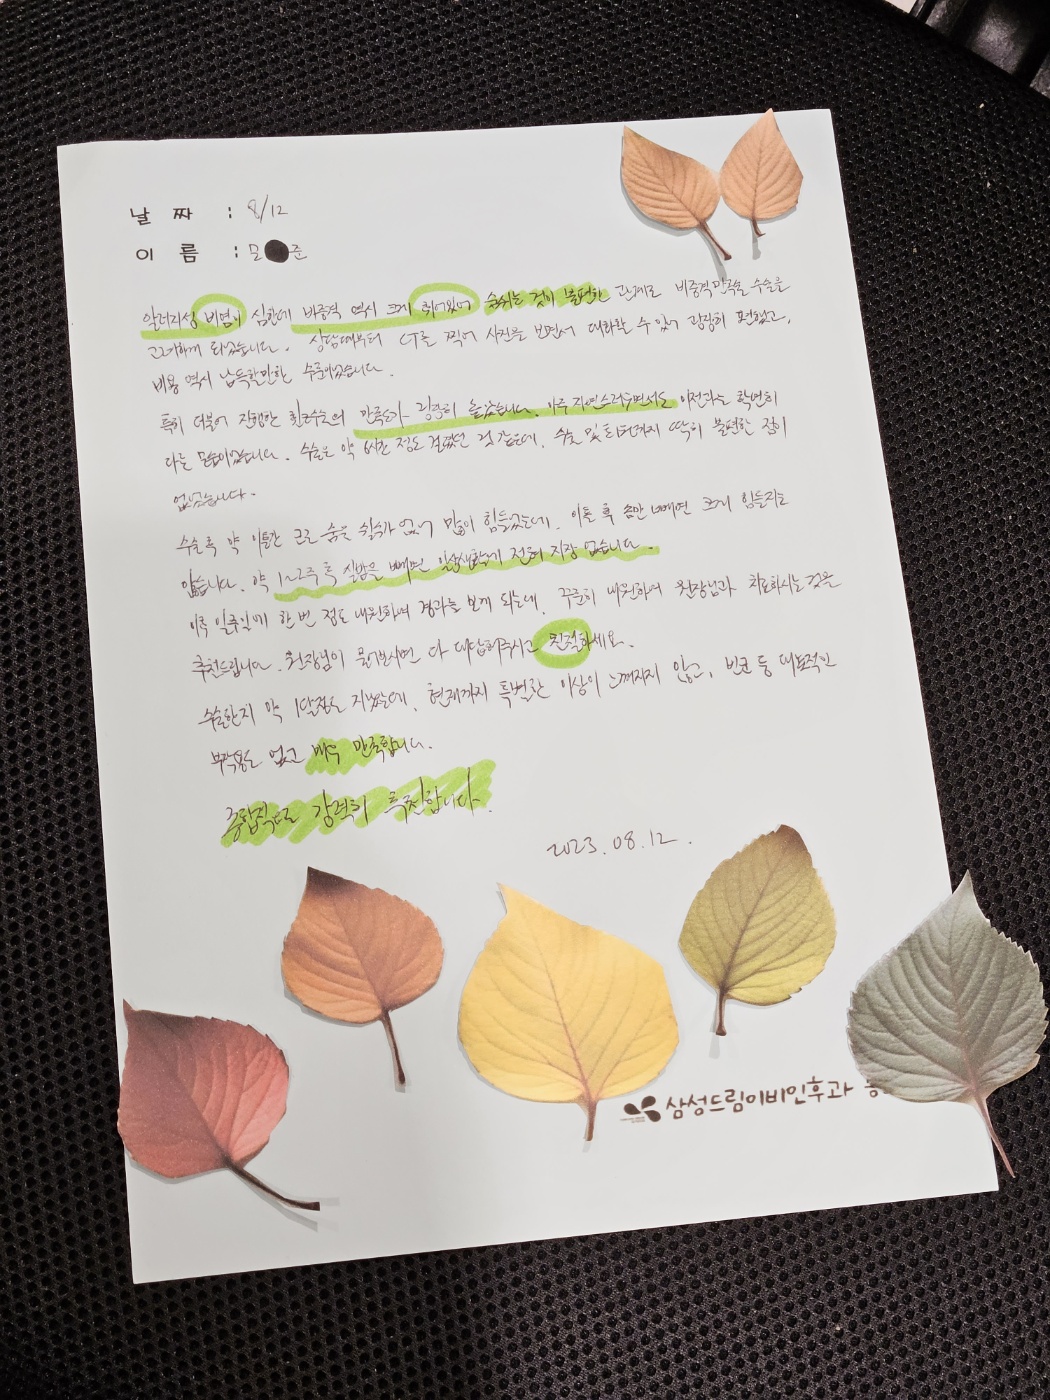 날 짜 : 8/12
이 름 : 모 준
알러지성 비염이 심한데 비중격 역시 크게 휘어있어 숨쉬는 것이 불편한 관계로 비중격만곡술 수술을
고려하게 되었습니다. 상담때부터 CT를 찍어 사진을 보면서 대화할 수 있어 굉장히 편했고,
비용 역시 납득할만한 수준이었습니다.
특히 더불어 진행한 휜코수술의 만족도가 굉장히 높았습니다. 아주 자연스러우면서도 이전과는 확연히
다른 모습이었습니다. 수술은 약 6시간 정도 걸렸던 것 같은데, 수술 및 회복까지 딱히 불편한 점이
없었습니다.
수술 후 약 이틀간 코로 숨을 쉴수가 없어 많이 힘들었는데, 이틀 후 솜만 빼면 크게 힘들지는
않습니다. 약 1~2주 후 실밥을 빼면 일상생활에 전혀 지장 없습니다.
이후 일주일에 한 번 정도 내원하여 경과를 보게 되는데, 꾸준히 내원하여 원장님과 치료하시는 것을
추천드립니다. 원장님이 물어보시면 다 대답해주시고 친절하세요.
수술한지 약 1달정도 지났는데, 현재까지 특별한 이상이 느껴지지 않고, 빈코 등 대표적인
부작용도 없고 매우 만족합니다.
종합적으로 강력히 추천합니다.
2023.08.12.
삼성드림이비인후과